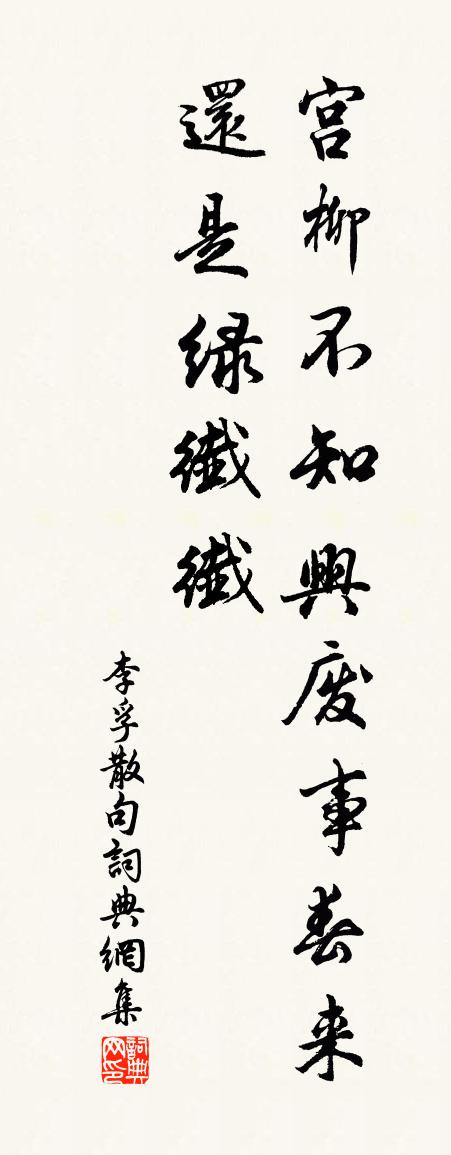 宮柳不知興廢事春来
還是绿纖纖
李孚散句詞典網集
詞典网印